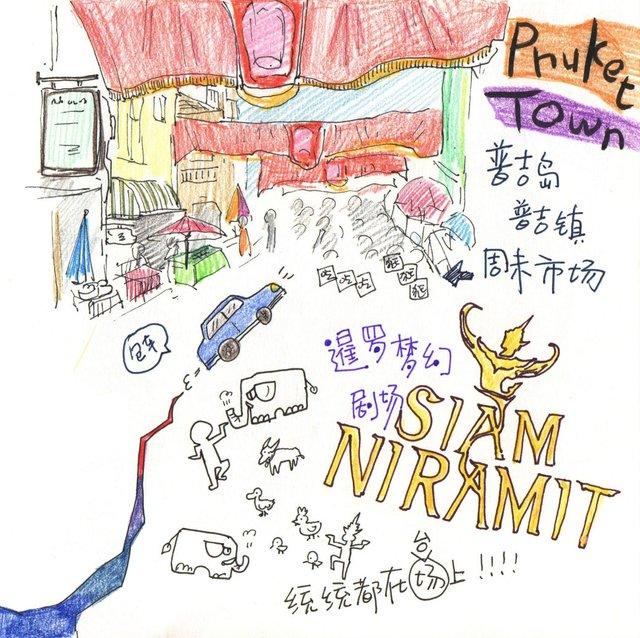 Phuket
Town
普吉岛
普吉镇
周末市场
吃吃吃
包车
暹罗梦幻
剧场
SIAM
NIRAMIT
台
统统都在场上!!!!